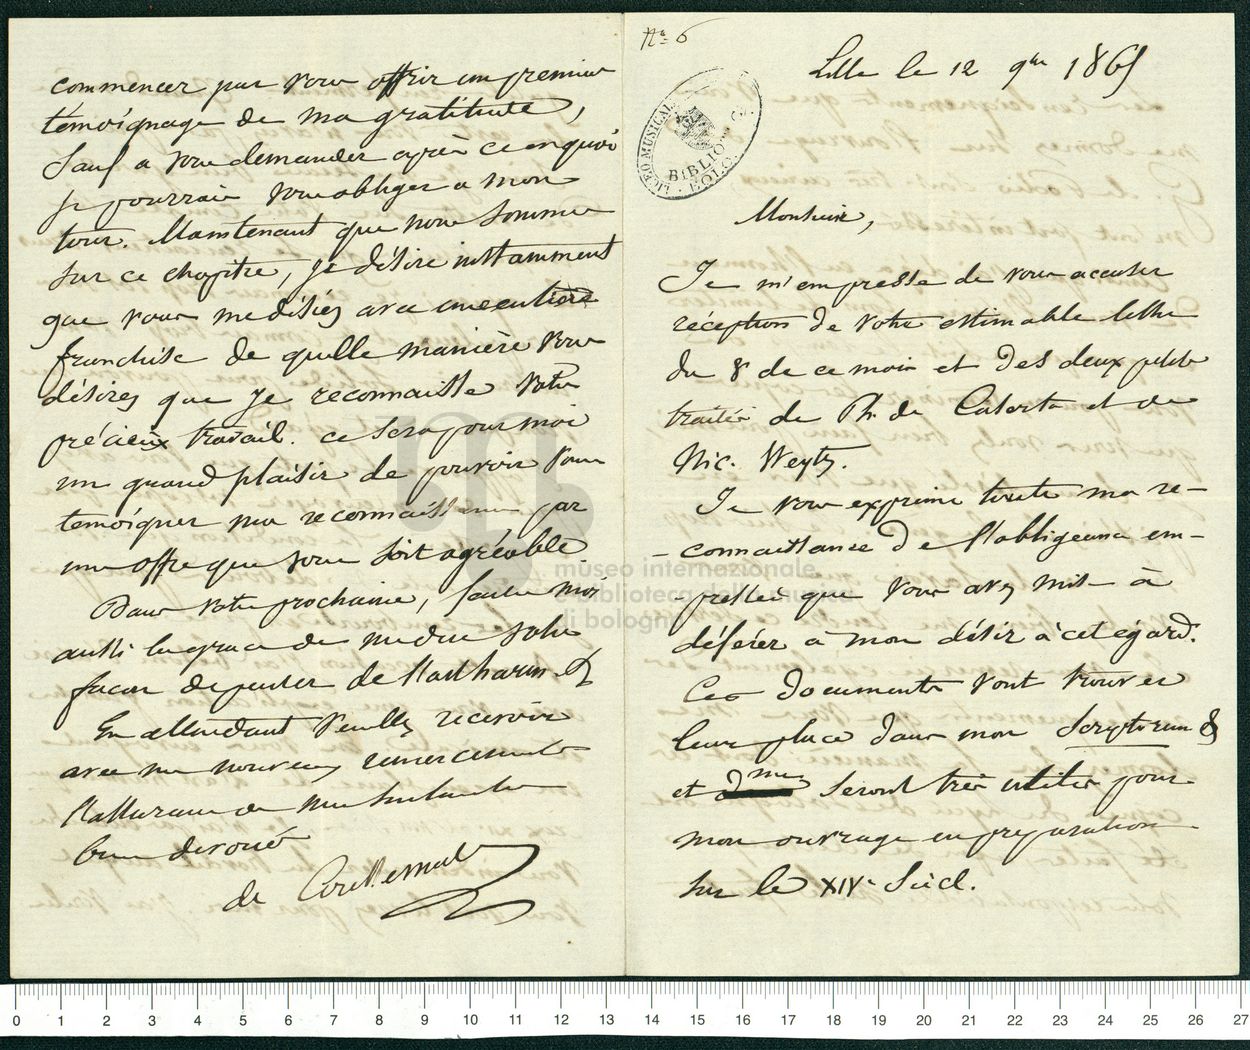 N.º 6
Lille le 12 9bre 1865
LICEO MUSICALE
BIBLIOTECA
BOLO
Monsieur,
Je m'empresse de vous accuser
réception de votre estimable lettre
du 8 de ce mois et des deux petits
traités de Ph. de Caserta et de
Nic. Weyts.
Je vous exprime toute ma re-
-connaissance de l'obligeance em-
-pressée que vous avez mise à
déférer à mon désir à cet égard.
Ces documents vont trouver
leur place dans mon Scriptorum &
et seront très utiles pour
mon ouvrage en preparation
sur le XIVe Siècl.
commencer par vous offrir un premier
témoignage de ma gratitude,
Sauf à vous demander après ce en quoi
je pourrais vous obliger à mon
tour. Maintenant que nous sommes
sur ce chapitre, je désire instamment
que vous me disiez avec une entière
franchise de quelle manière vous
désirez que je reconnaisse votre
précieux travail. ce sera pour moi
un grand plaisir de pouvoir vous
temoigner ma reconnaissance par
une offre que vous soit agréable
Dans votre prochaine, faites moi
aussi la grace de me dire votre
façon de penser de l'art harm. &
En attendant Veuillez recevoir
avec mes nouveaux remerciments
l'assurance de mes sentiments
bien devoués
de Coussemaker
museo internazionale
e biblioteca della musica
di bologna
0 1 2 3 4 5 6 7 8 9 10 11 12 13 14 15 16 17 18 19 20 21 22 23 24 25 26 27